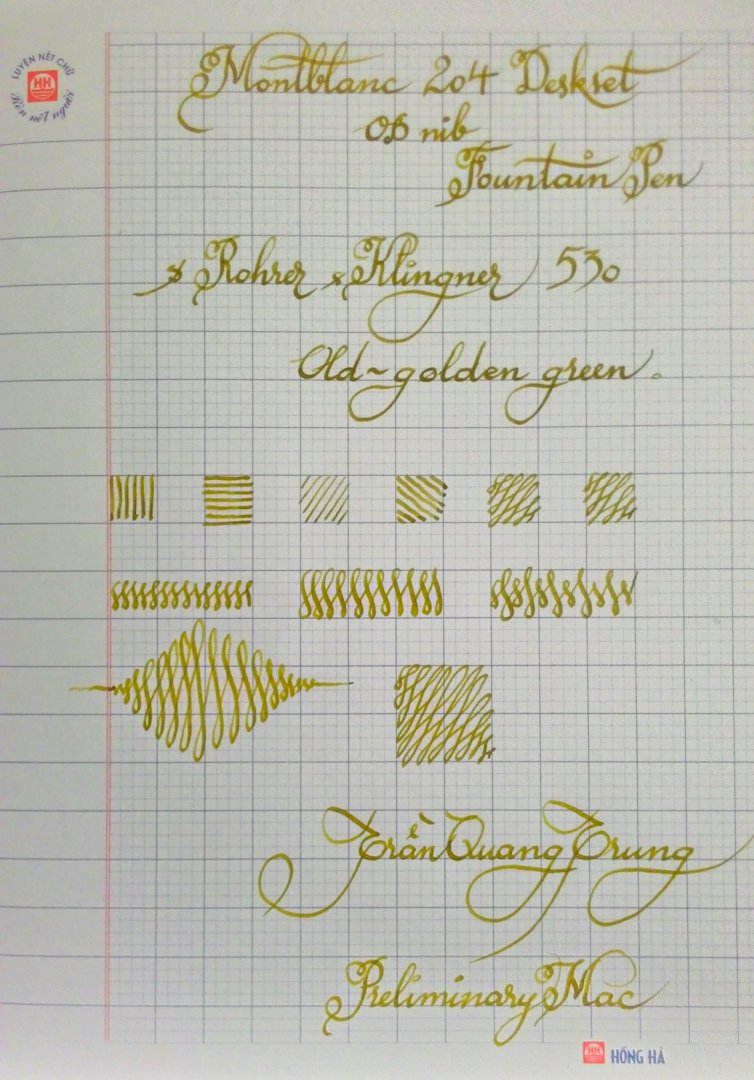 LUYỆN NẾT CHỮ
HH
Rèn nết người
Montblanc 204 Deskset
OB nib
Fountain Pen
& Rohrer & Klingner 530
Old~golden green.
Trần Quang Trung
Preliminary Mac
HH HỒNG HÀ